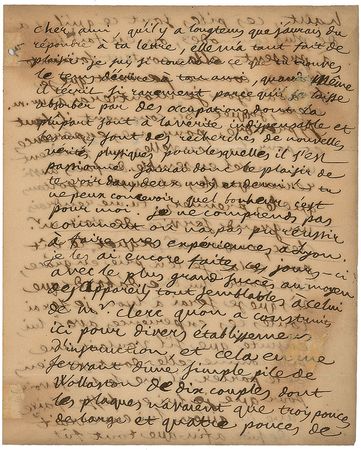 cher ami qu'il y a longtems que j'aurais du
répondre à ta lettre, elle m'a tant fait de
plaisir, je suis si touché de ce que tu trouves
le tems d'écrire à ton ami, quand même
il écrit si rarement parce qu'il se laisse
absorber par des occupations dont la
plupart sont à la vérité indispensables et
dont les autres sont des recherches de nouvelles
vérités physiques pour lesquelles il s'est
passionné. J'aurai donc le plaisir de
te voir dans deux mois et demi! tu
ne peux concevoir quel bonheur c'est
pour moi. je ne comprends pas
comment on n'a pas pu réussir
à faire mes expériences à Lyon.
je les ai encore faites ces jours-ci
avec le plus grand succès au moyen
d'appareils tout semblables à celui
de Mr clerc qu'on a construits
ici pour divers établissemens
d'instruction et cela en me
servant d'une simple pile de
Wollaston de dix couples dont
les plaques n'avaient que trois pouces
de large et quatre pouces de